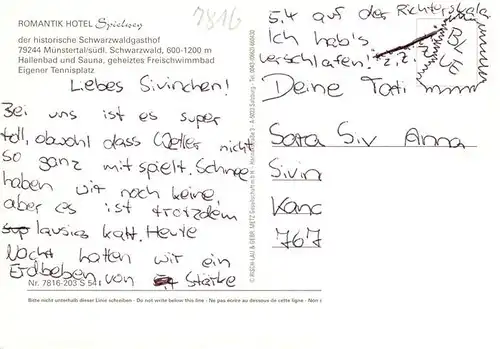 ROMANTIK HOTEL Spielweg
der historische Schwarzwaldgasthof
79244 Münstertal/südl. Schwarzwald, 600-1200 m
Hallenbad und Sauna, geheiztes Freischwimmbad
Eigener Tennisplatz
7816
Liebes Sivinchen!
Bei uns ist es super
toll, obwohl dass Wetter nicht
so ganz mitspielt. Schnee
haben wir noch keine,
aber es ist trotzdem
lausig kalt. Heute
Nacht hatten wir ein
Erdbeben von Stärke
Nr. 7816-203 S 54
5,4 auf der Richterskala
Ich hab's
verschlafen! z.z.
Deine Tati
BLUE
Sara Siv Anna
Sivin
Kanc
767
Bitte nicht unterhalb dieser Linie schreiben - Do not write below this line - Ne pas écrire au dessous de cette ligne - Non